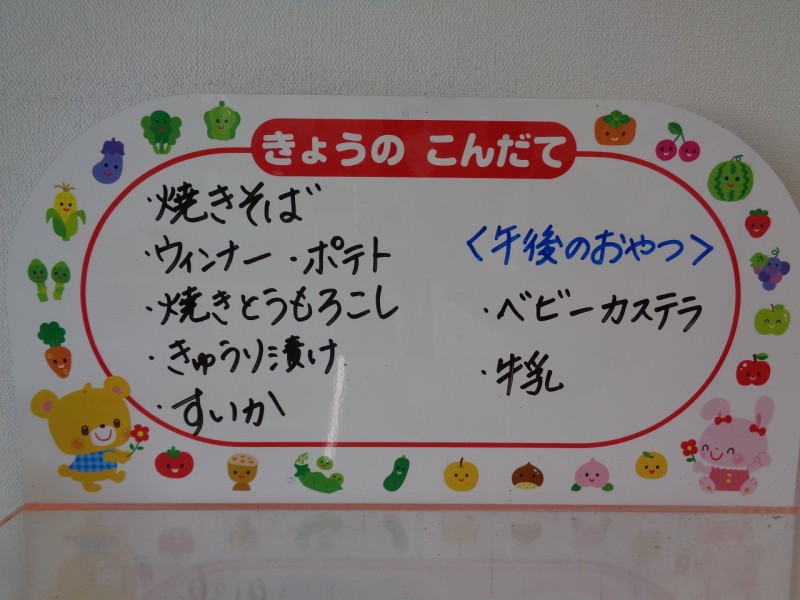 きょうの こんだて
・焼きそば
・ウィンナー・ポテト
・焼きとうもろこし
・きゅうり漬け
・すいか
〈午後のおやつ〉
・ベビーカステラ
・牛乳